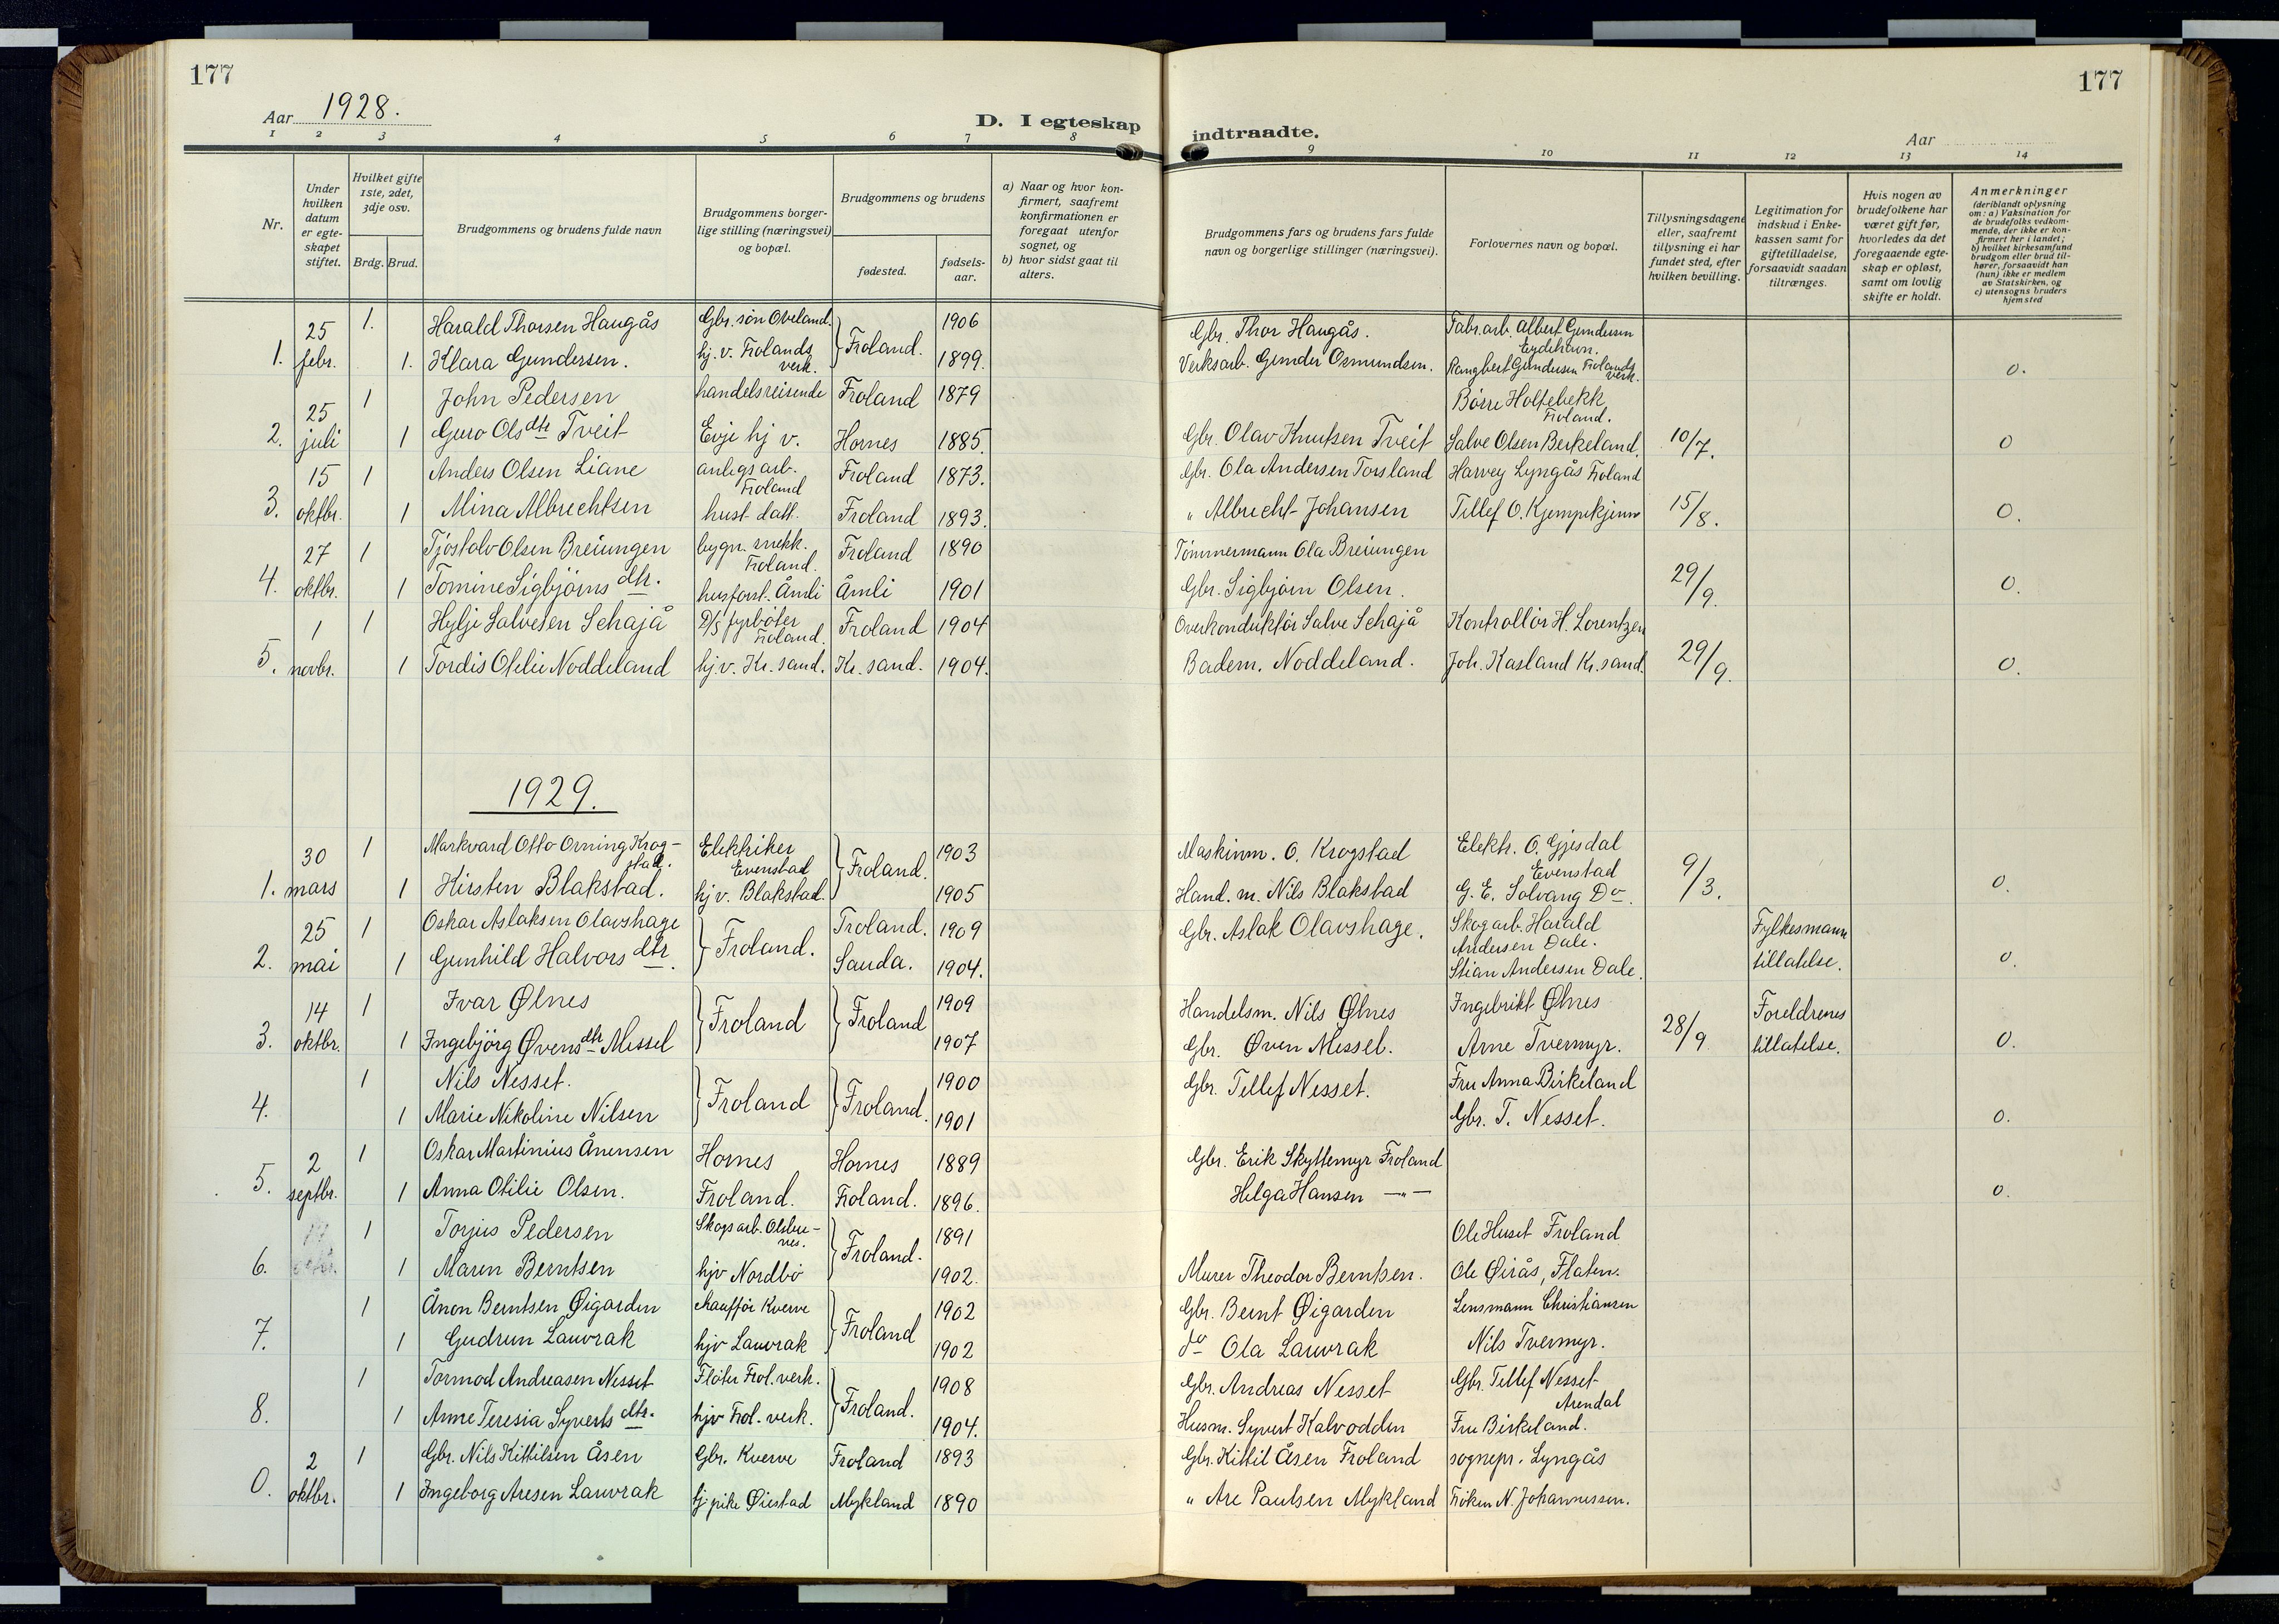 177
177
Aar 1928.
D. I egteskap indtraadte.
Aar
1 2 3 4 5 6 7 8 9 10 11 12 13 14
Nr.
Under hvilken datum er egte-skapet stiftet.
Hvilket gifte 1ste, 2det, 3dje osv.
Brdg. Brud.
Brudgommens og brudens fulde navn
Brudgommens borger-lige stilling (næringsvei) og bopæl.
Brudgommens og brudens
fødested.
fødsels-aar.
a) Naar og hvor kon-firmert, saafremt konfirmationen er foregaat utenfor sognet, og
b) hvor sidst gaat til alters.
Brudgommens fars og brudens fars fulde navn og borgerlige stillinger (næringsvei).
Forlovernes navn og bopæl.
Tillysningsdagene eller, saafremt tillysning ei har fundet sted, efter hvilken bevilling.
Legitimation for indskud i Enke-kassen samt for giftetilladelse, forsaavidt saadan tiltrænges.
Hvis nogen av brudefolkene har været gift før, hvorledes da det foregaaende egte-skap er opløst, samt om lovlig skifte er holdt.
Anmerkninger (deriblandt oplysning om: a) Vaksination for de brudefolks vedkom-mende, der ikke er kon-firmert her i landet; b) hvilket kirkesamfund brudgom eller brud til-hører, forsaavidt han (hun) ikke er medlem av Statskirken, og c) utensogns bruders hjemsted
25 1. Harald Thorsen Haugås Gbr. søn Oveland. } Froland. 1906 Gbr. Thor Haugås. Fabr.arb. Albert Gundersen Eydehavn.
1. febr. 1. Klara Gundersen. hj. v. Frolands verk. 1899. Verksarb. Gunder Osmundsen. Rangbert Gundersen Frolands verk. 0.
25 1 John Pedersen handelsreisende Froland 1879 Børre Holtebekk Froland.
2. juli 1 Guro Olsdtr Tveit Evje hj v. Hornes 1885. Gbr. Olav Knutsen Tveit Salve Olsen Berkeland. 10/7. 0
15 1 Anders Olsen Liane anlegsarb. Froland Froland 1873. Gbr. Ola Andersen Torsland Harvey Lyngås Froland
3. oktbr. 1 Mina Albrechtsen hust. datt. Froland 1893. " Albrecht Johansen Tellef O. Kjempekjenn 15/8. 0.
27 1 Tjostolv Olsen Breiungen bygn. snekk. Froland. Froland 1890 Tømmermann Ola Breiungen
4. oktbr. 1 Tomine Sigbjørns dtr. husforst. Åmli Åmli 1901 Gbr. Sigbjørn Olsen. 29/9. 0.
1 1 Hylje Salvesen Schajå D/S fyrbøter Froland. Froland 1904 Overkonduktør Salve Schajå Kontrollør H. Lorentzen
5. novbr. 1 Tordis Otelie Noddeland hj. v. Kr. sand. Kr. sand. 1904. Badem. Noddeland. Joh. Kasland Kr. sand. 29/9. 0.
1929.
30 1 Markvard Otto Orning Krog-stad. Elektriker Evenstad } Froland. 1903 Maskinm. O. Krogstad Elektr. O. Gjesdal Evenstad
1. mars 1 Kirsten Blakstad. hj v. Blakstad. 1905 Hand. m. Nils Blakstad G. E. Solvang Do. 9/3. 0.
25 1 Oskar Aslaksen Olavshage } Froland. Froland. 1909 Gbr. Aslak Olavshage. Skogarb. Harald Andersen Dale. Fylkesmann
2. mai 1 Gunhild Halvors dtr. Sauda. 1904. Stian Andersen Dale. tillatelse. 0.
14 1 Ivar Ølnes } Froland } Froland 1909 Handelsm. Nils Ølnes Ingebrikt Ølnes Foreldrenes
3. oktbr. 1 Ingebjörg Øvensdtr Messel 1907 Gbr. Øven Messel. Arne Tvermyr. 28/9 tillatelse. 0.
1 Nils Nesset. } Froland } Froland. 1900 Gbr. Tellef Nesset. Fru Anna Birkeland
4. 1 Marie Nikoline Nilsen 1901 Gbr. T. Nesset. 0.
2 1 Oskar Martinius Ånensen Hornes Hornes 1889 Gbr. Erik Skyttemyr Froland
5. septbr. 1 Anna Otilie Olsen. Froland. Froland. 1896. Helga Hansen —"— 0.
1 Torjus Pedersen Skogsarb. } Froland. 1891 Ole Huset Froland
6. 1 Maren Berntsen hjv Nordbø 1902. Murer Theodor Berntsen. Ole Øirås, Flaten.
1 Ånon Berntsen Øigarden chauffør Kverve } Froland 1902 Gbr. Bernt Øigarden Lensmann Christiansen
7. 1 Gudrun Lauvrak hjv Lauvrak 1902 do Ola Lauvrak Nils Tvermyr.
1 Tormod Andreasen Nesset Fløter Frol. verk. } Froland. 1908 Gbr. Andreas Nesset Gbr. Tellef Nesset Arendal
8. 1 Anne Teresia Syverts dtr. hjv Frol. verk. 1904. Husm. Syvert Kalvodden Fru Birkeland.
2 1 Gbr. Nils Kittilsen Åsen Gbr. Kverve Froland 1893 Gbr. Kittil Åsen Froland sognepr. Lyngås
0. oktbr. 1 Ingeborg Aresen Lauvrak hj pike Øiestad Mykland 1890 " Are Paulsen Mykland Frøken N. Johannessen.